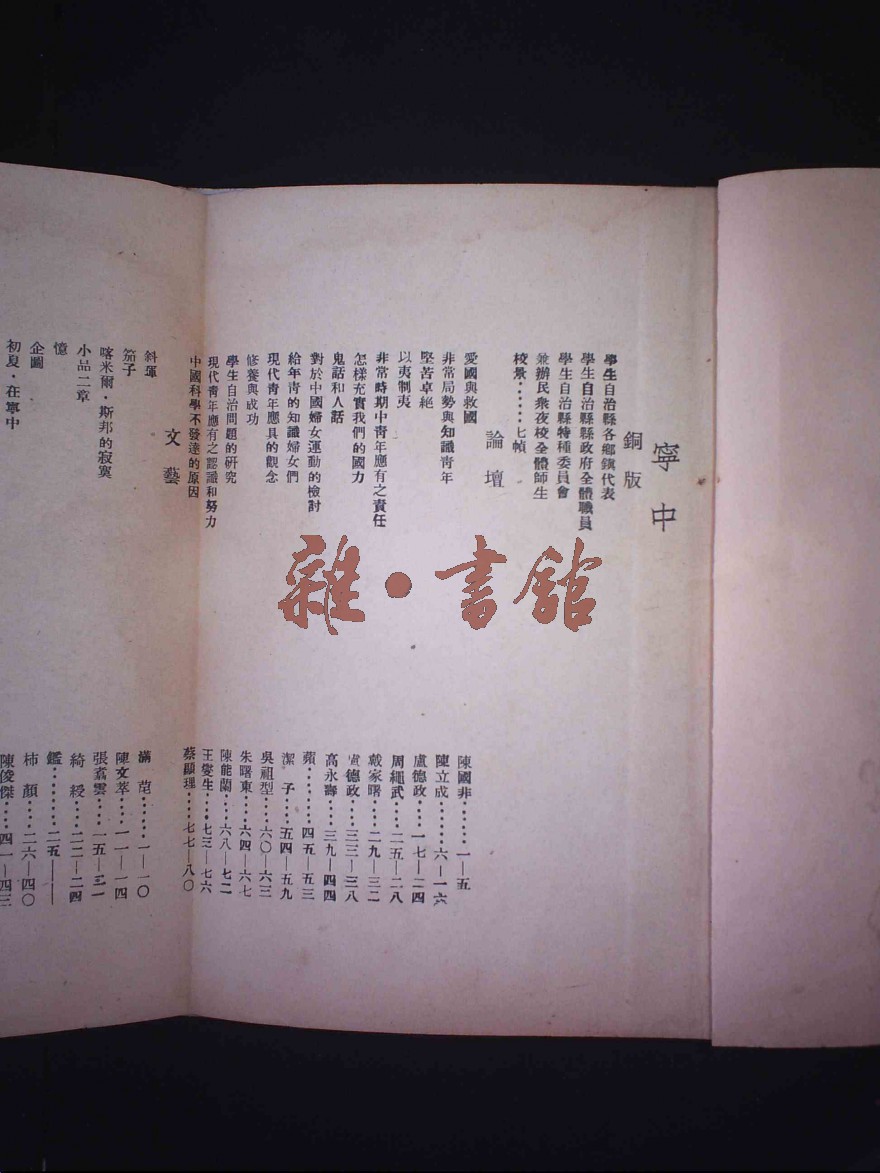 寧中
銅版
學生自治縣各鄉鎮代表
學生自治縣縣政府全體職員
學生自治縣特種委員會
兼辦民衆夜校全體師生
校景······七幀
論壇
愛國與救國 陳國非······一—五
非常局勢與知識青年 陳立成······六—一六
堅苦卓絕 盧德政····一七—二四
以夷制夷 周繩武····二五—二八
非常時期中青年應有之責任 戴家曙····二九—三二
怎樣充實我們的國力 盧德政····三三—三八
鬼話和人話 高永壽····三九—四四
對於中國婦女運動的檢討 蘋········四五—五三
給年青的知識婦女們 潔子····五四—五九
現代青年應具的觀念 吳祖型····六〇—六三
修養與成功 朱曙東····六四—六七
學生自治問題的研究 陳能蘭····六八—七二
現代青年應有之認識和努力 王燮生····七三—七六
中國科學不發達的原因 蔡顯理····七七—八〇
文藝
斜暉 滿······一—一〇
笳子 陳文萃····一一—一四
喀米爾·斯邦的寂寞 張雲····一五—二一
小品二章 綺綬····二二—二四
憶 鑑········二五——
企圖 柿顏····二六—四〇
初夏·在寧中 陳俊傑····四一—四三
雜·書館